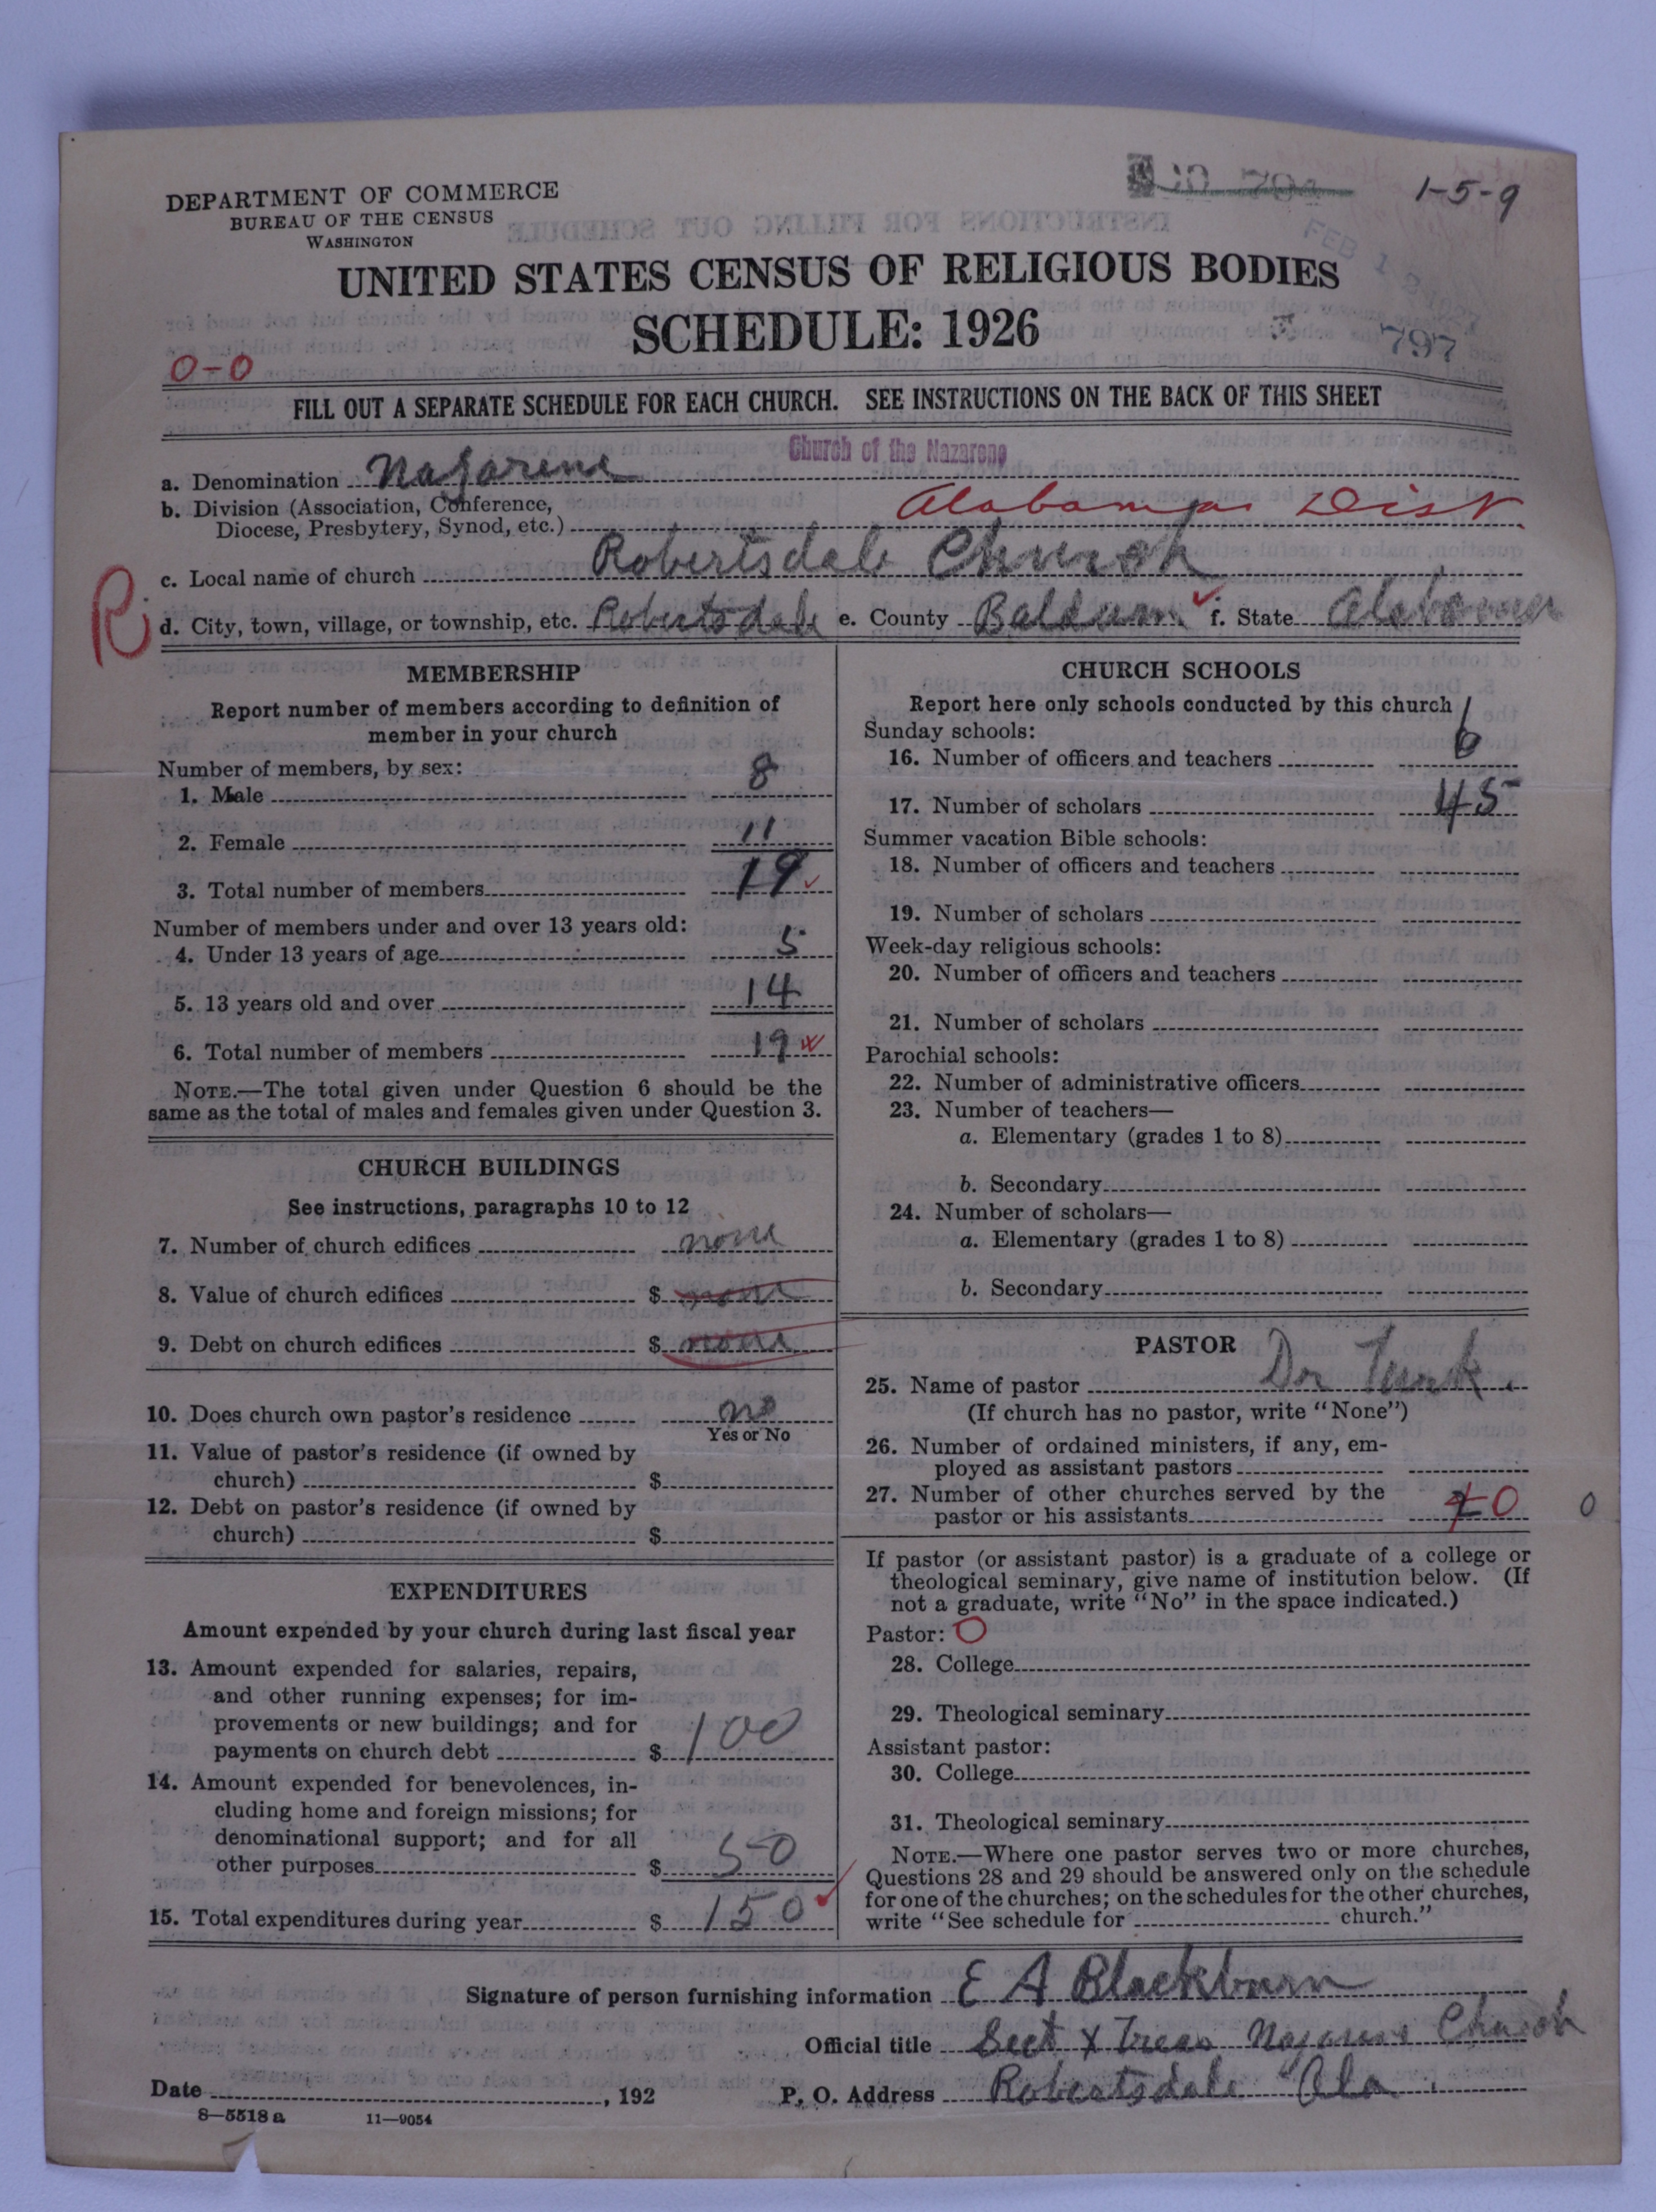 DEPARTMENT OF COMMERCE
BUREAU OF THE CENSUS
WASHINGTON
1-5-9
UNITED STATES CENSUS OF RELIGIOUS BODIES
SCHEDULE: 1926
FEB 12 1927
797
0-0
FILL OUT A SEPARATE SCHEDULE FOR EACH CHURCH. SEE INSTRUCTIONS ON THE BACK OF THIS SHEET
Church of the Nazarene
a. Denomination Nazarene
b. Division (Association, Conference,
Diocese, Presbytery, Synod, etc.) Alabama Dist
c. Local name of church Robertsdale Church
R
d. City, town, village, or township, etc. Robertsdale e. County Baldwin f. State Alabama
MEMBERSHIP
Report number of members according to definition of
member in your church
Number of members, by sex:
1. Male 8
2. Female 11
3. Total number of members 19
Number of members under and over 13 years old:
4. Under 13 years of age 5
5. 13 years old and over 14
6. Total number of members 19
NOTE.—The total given under Question 6 should be the
same as the total of males and females given under Question 3.
CHURCH BUILDINGS
See instructions, paragraphs 10 to 12
7. Number of church edifices none
8. Value of church edifices $ none
9. Debt on church edifices $ none
10. Does church own pastor's residence no
Yes or No
11. Value of pastor's residence (if owned by
church) $
12. Debt on pastor's residence (if owned by
church) $
EXPENDITURES
Amount expended by your church during last fiscal year
13. Amount expended for salaries, repairs,
and other running expenses; for im-
provements or new buildings; and for
payments on church debt $ 100
14. Amount expended for benevolences, in-
cluding home and foreign missions; for
denominational support; and for all
other purposes $ 50
15. Total expenditures during year $ 150
CHURCH SCHOOLS
Report here only schools conducted by this church
Sunday schools:
16. Number of officers and teachers 6
17. Number of scholars 45
Summer vacation Bible schools:
18. Number of officers and teachers
19. Number of scholars
Week-day religious schools:
20. Number of officers and teachers
21. Number of scholars
Parochial schools:
22. Number of administrative officers
23. Number of teachers—
a. Elementary (grades 1 to 8)
b. Secondary
24. Number of scholars—
a. Elementary (grades 1 to 8)
b. Secondary
PASTOR
25. Name of pastor Dr Turk
(If church has no pastor, write "None")
26. Number of ordained ministers, if any, em-
ployed as assistant pastors
27. Number of other churches served by the
pastor or his assistants 0 0
If pastor (or assistant pastor) is a graduate of a college or
theological seminary, give name of institution below. (If
not a graduate, write "No" in the space indicated.)
Pastor: O
28. College
29. Theological seminary
Assistant pastor:
30. College
31. Theological seminary
NOTE.—Where one pastor serves two or more churches,
Questions 28 and 29 should be answered only on the schedule
for one of the churches; on the schedules for the other churches,
write "See schedule for church."
Signature of person furnishing information E A Blackburn
Official title Sect & Treas Nazarene Church
Date , 192 P. O. Address Robertsdale Ala
8—5518 a 11—9054